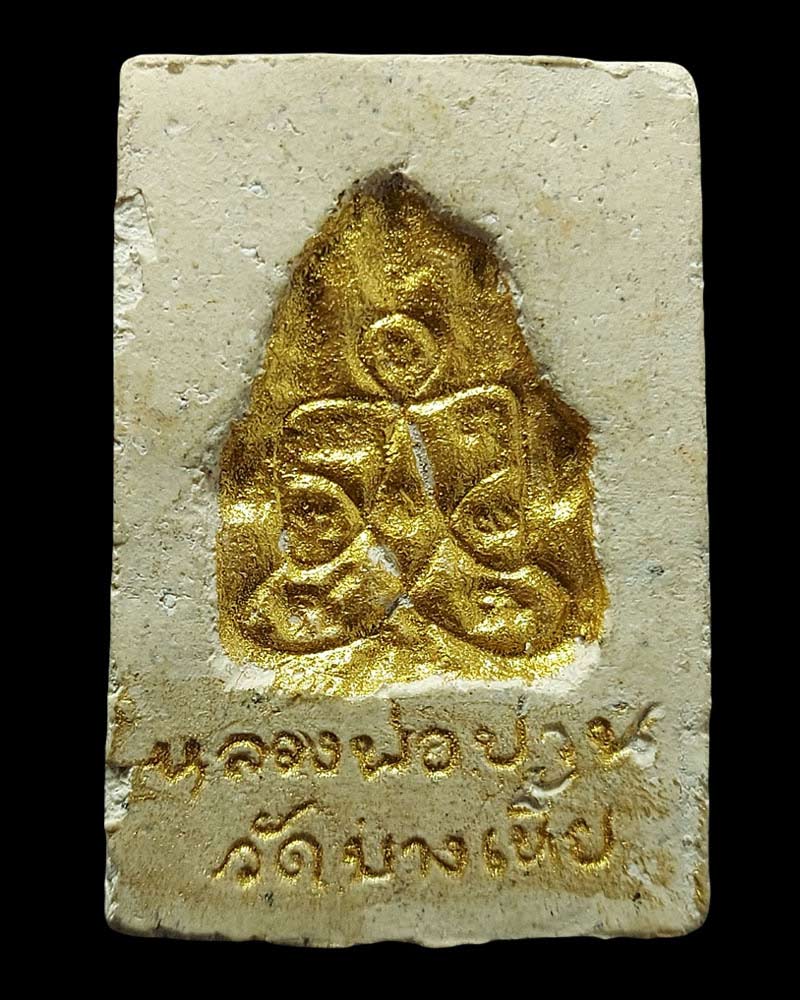 หลวงพ่อปาน
วัดบางเหี้ย